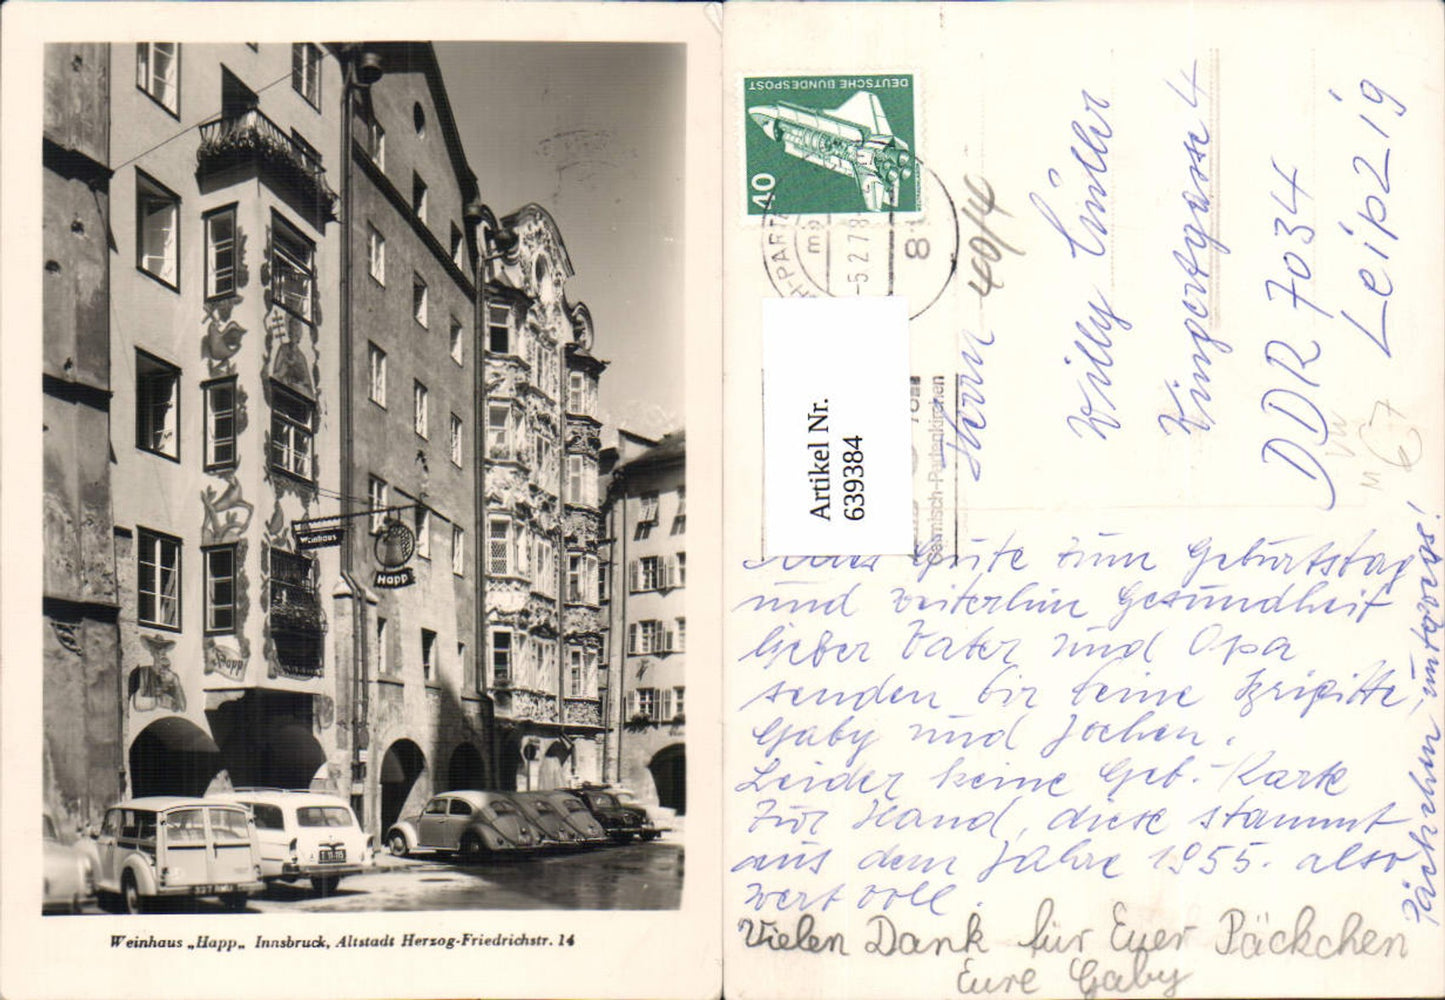 Weinhaus
Happ
Happ
327 RMU
Weinhaus „Happ„ Innsbruck, Altstadt Herzog-Friedrichstr. 14
DEUTSCHE BUNDESPOST
40
-5.2.78-
8
Garmisch-Partenkirchen
Artikel Nr.
639384
40/4
Herrn
Willy
DDR 7034
Leipzig
67
Gute zum Geburtstag
und weiterhin Gesundheit
lieber Vater und Opa
senden Dir Deine Brigitte,
Gaby und Jochen.
Leider keine Geb.-Karte
zur Hand, diese stammt
aus dem Jahre 1955. also
wertvoll.
Päckchen unterwegs!
Vielen Dank für Euer Päckchen
Eure Gaby